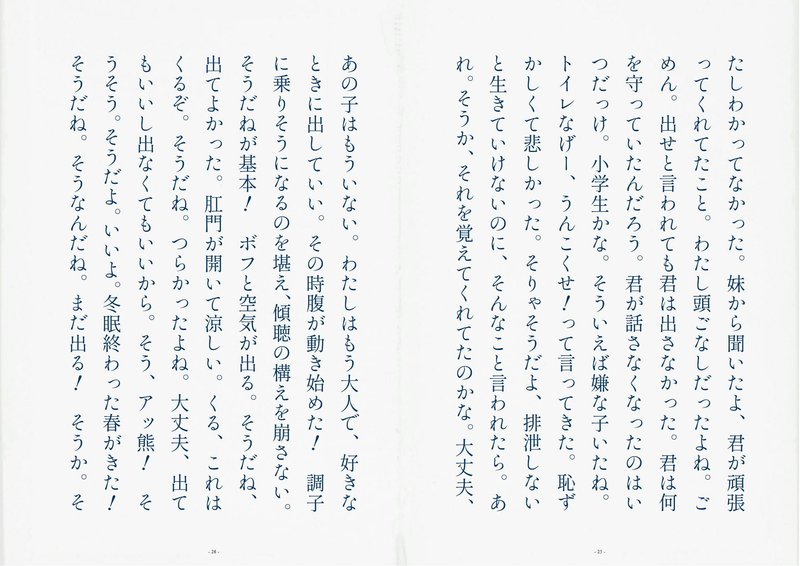 たしわかってなかった。妹から聞いたよ、君が頑張
ってくれてたこと。わたし頭ごなしだったよね。ご
めん。出せと言われても君は出さなかった。君は何
を守っていたんだろう。君が話さなくなったのはい
つだっけ。小学生かな。そういえば嫌な子いたね。
トイレなげー、うんこくせ！って言ってきた。恥ず
かしくて悲しかった。そりゃそうだよ、排泄しない
と生きていけないのに、そんなこと言われたら。あ
れ。そうか、それを覚えてくれてたのかな。大丈夫、
- 25 -
あの子はもういない。わたしはもう大人で、好きな
ときに出していい。その時腹が動き始めた！　調子
に乗りそうになるのを堪え、傾聴の構えを崩さない。
そうだねが基本！　ボフと空気が出る。そうだね、
出てよかった。肛門が開いて涼しい。くる、これは
くるぞ。そうだね。つらかったよね。大丈夫、出て
もいいし出なくてもいいから。そう、アッ熊！　そ
うそう。そうだよ。いいよ。冬眠終わった春がきた！
そうだね。そうなんだね。まだ出る！　そうか。そ
- 26 -